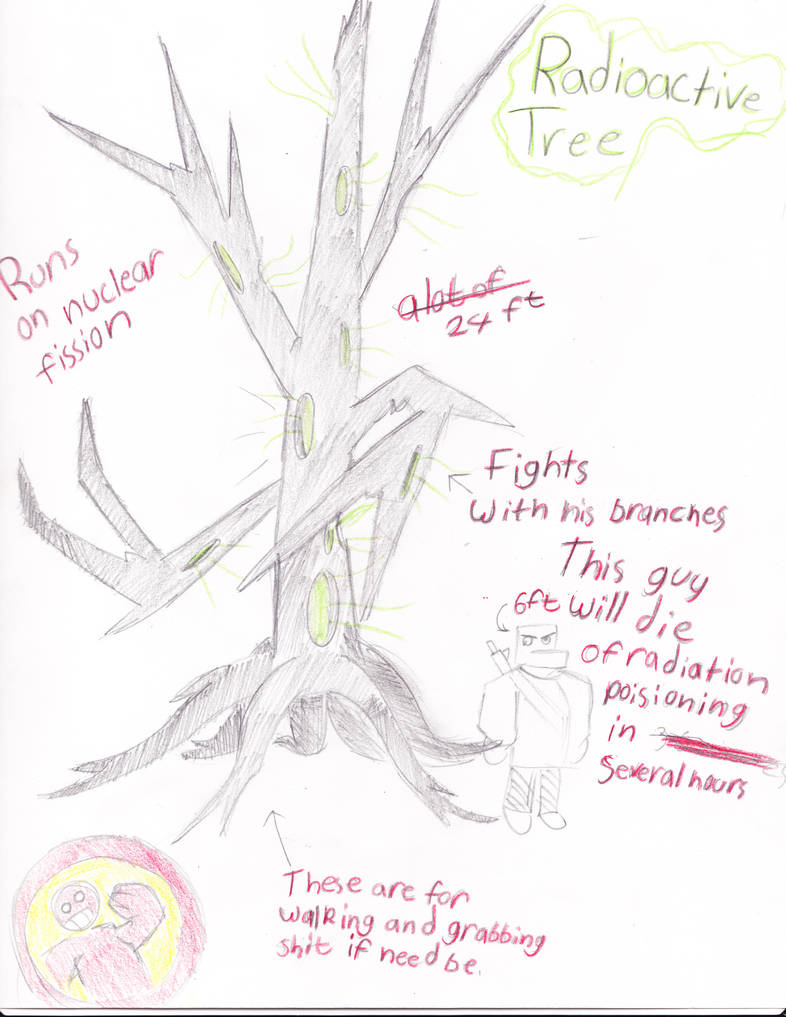 Radioactive
Tree
Runs
on nuclear
fission
a lot of
24 ft
Fights
with his branches
This guy
6ft
will die
of radiation
poisioning
in
several hours
These are for
walking and grabbing
shit if need be.